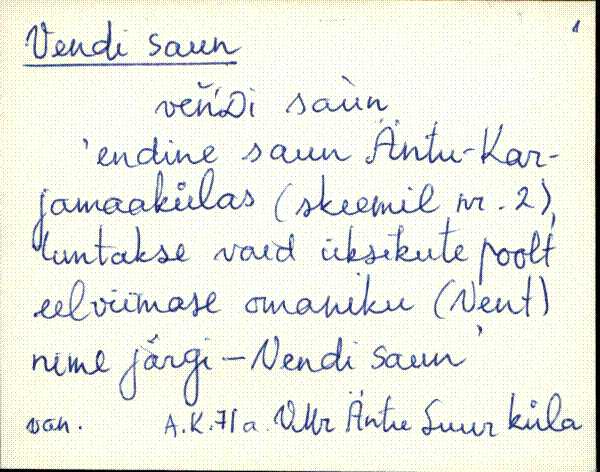 1
Vendi saun
veňDi saùn
'endine saun Äntu-Kar-
jamaakülas (skeemil nr. 2),
tuntakse vaid üksikute poolt
eelviimase omaniku (Vent)
nime järgi – Vendi saun'
van. A.K. 71 a. VMr Äntu Suurküla